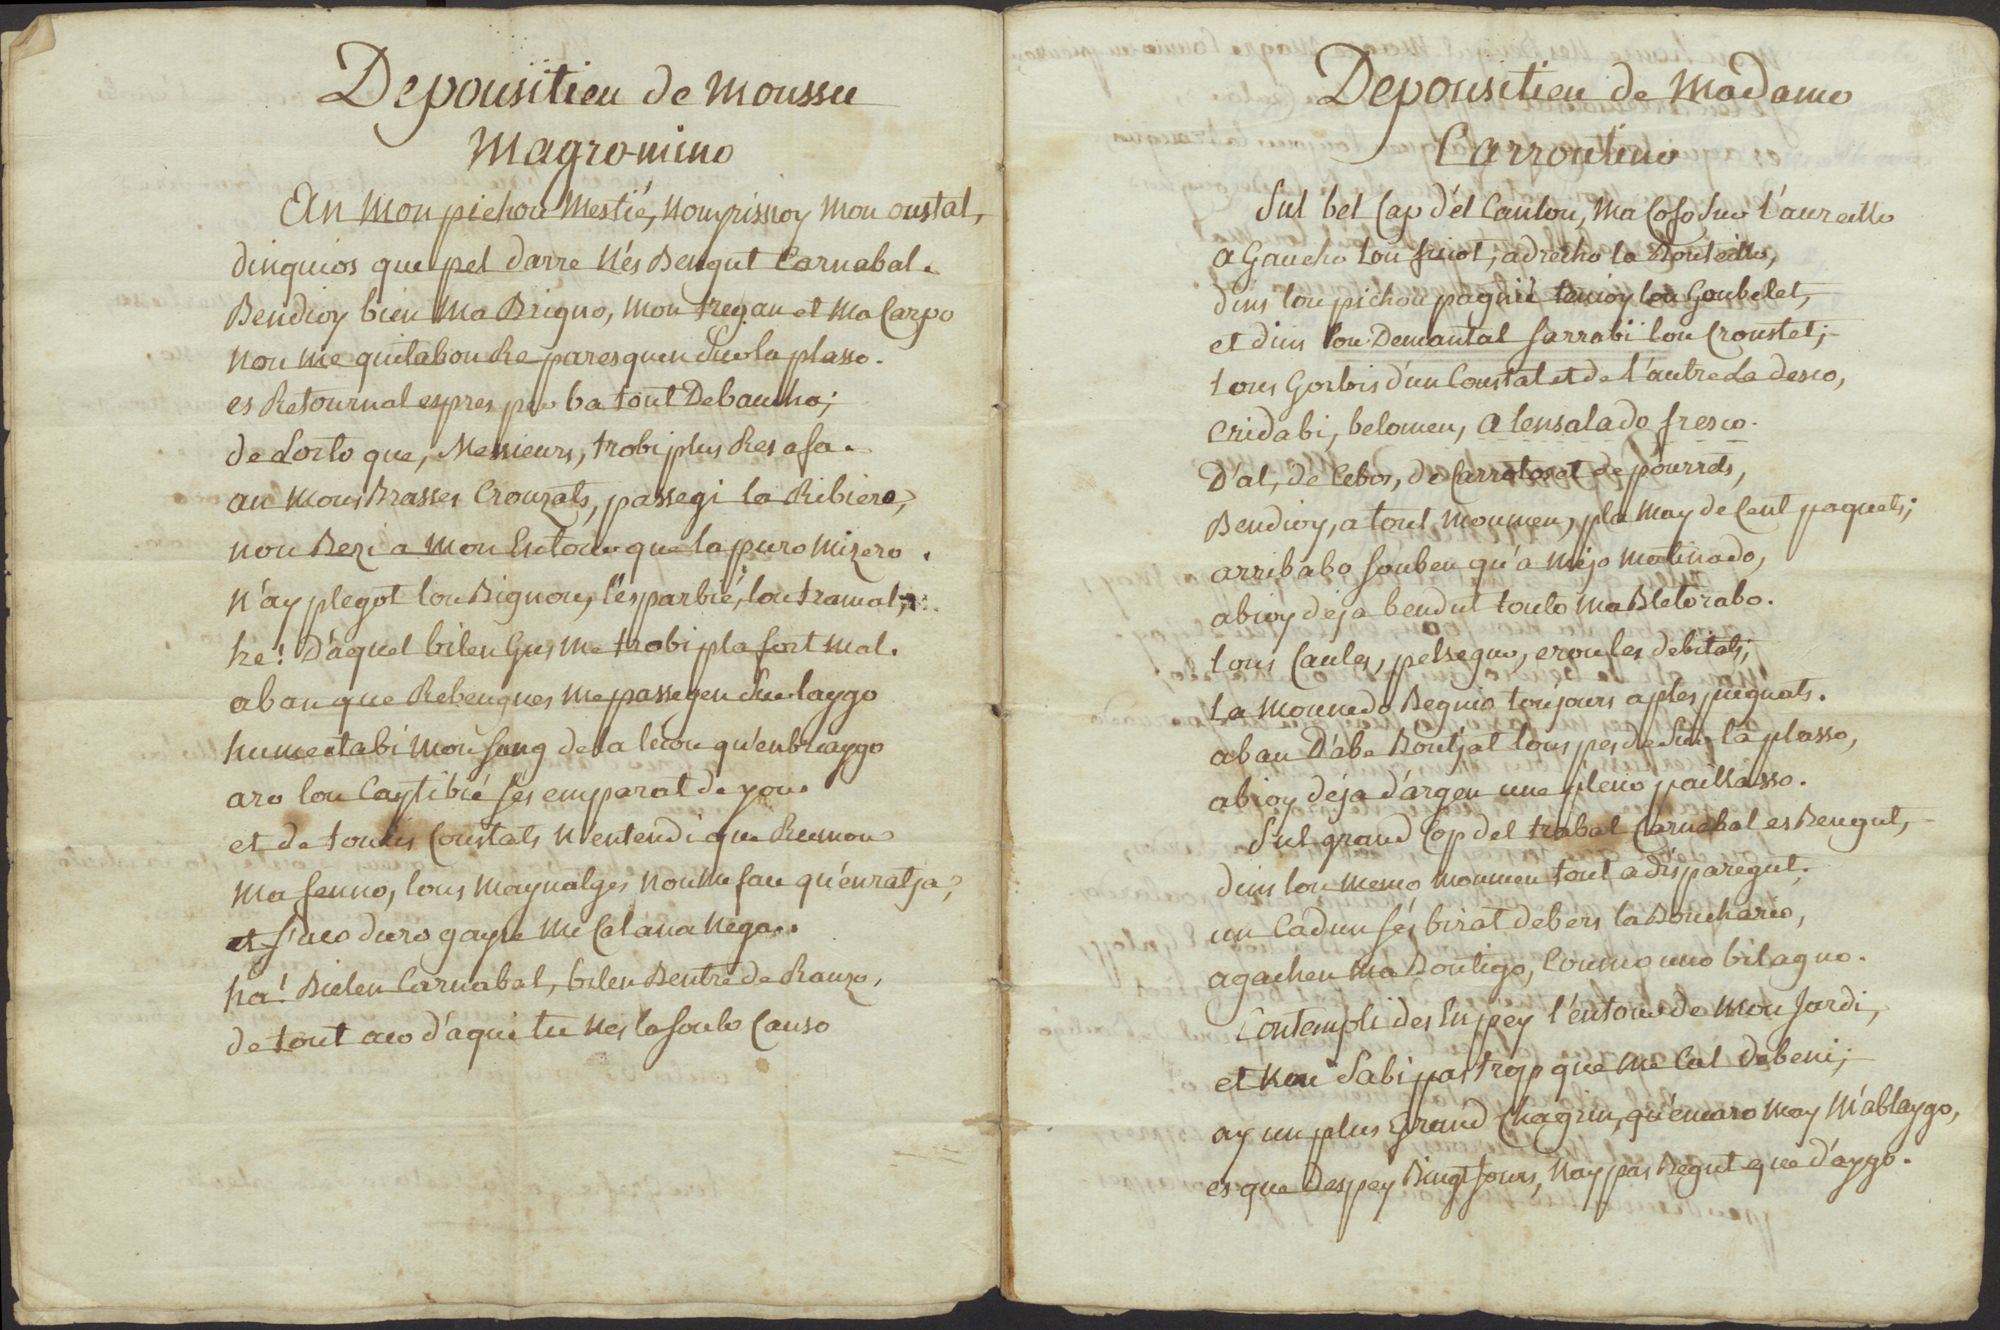 Depousitieu de moussu
Magro-mino
An mon pichou mestié, nouyrissioy mon oustal,
dinquios que pel darre n'és Bengut Carnabal.
Bendioy bien ma Brigno, mon tregan et ma Carpo
nou me quitabou Re paresquen suo la plasso.
es Retournal espres per ba tout Debaucha;
de Sorto que, Messieurs, trobi plus Res a fa.
an mous Brasses Crouzats, passegi la Ribiero,
nou Bezi a mon Entour que la puro mizero.
n'ay plegot lou Bignou, l'esparbié, lou tramal,
he! D'aquel bilen Gus me trobi pla fort mal.
aban que Rebengues me passegen suo laygo
humectabi mon sang de la licou qu'enbriaygo
aro lou Caytibié s'es emparat de you.
et de toutis Coustats n'entendi que Rumou
ma fenno, lous maynatges nou me fau qu'enratja,
et s'aco duro gayre me Cal ana nega.
ha! Bielen Carnabal, bilen Bentre de Ranzo,
de tout aco d'aqui tu nes la soulo Causo
Depousitieu de Madamo
Carroutino
Sul bel Cap d'él Cantou, ma Cofo suo l'aureillo
a Gaucho lou fuiot, a drecho la Bouteillo,
dins lou pichou pagnié tenioy lou Goubelet,
et dins lou Demantal sarrabi lou Croustet;
lous Gorbis d'un Coustat et de l'autre la desco,
cridabi, belomen, a lensalado fresco.
D'al, de Cebos, de Carrotos et de pourrets,
Bendioy, a tout moumen, pla may de Cent paquets;
arribabo souben qu'a mijo matinado,
abioy deja bendut touto ma Bletorabo.
lous Caules, pelsegno, erou les debitats;
la mounedo Begnio toujours a ples pugnats.
aban D'abe Boutjat lous pes de suo la plasso,
abioy déja d'argen une pleno paillasso.
Sul grand Cop del trabal Carnabal es Bengut,
dins lou memo moumen tout a disparegut;
un Cadun s'es birat debers la Bouchario,
agachen ma Boutigo, Coumo uno bilagno.
Contempli des Enpey l'entour de mon Jardi,
et nou Sabi pas trop que me Cal debeni;
ay un plus Grand Chagrin, qu'encaro may m'ablaygo,
es que Despey Bingt Jours, nay pas Begut que d'aygo.